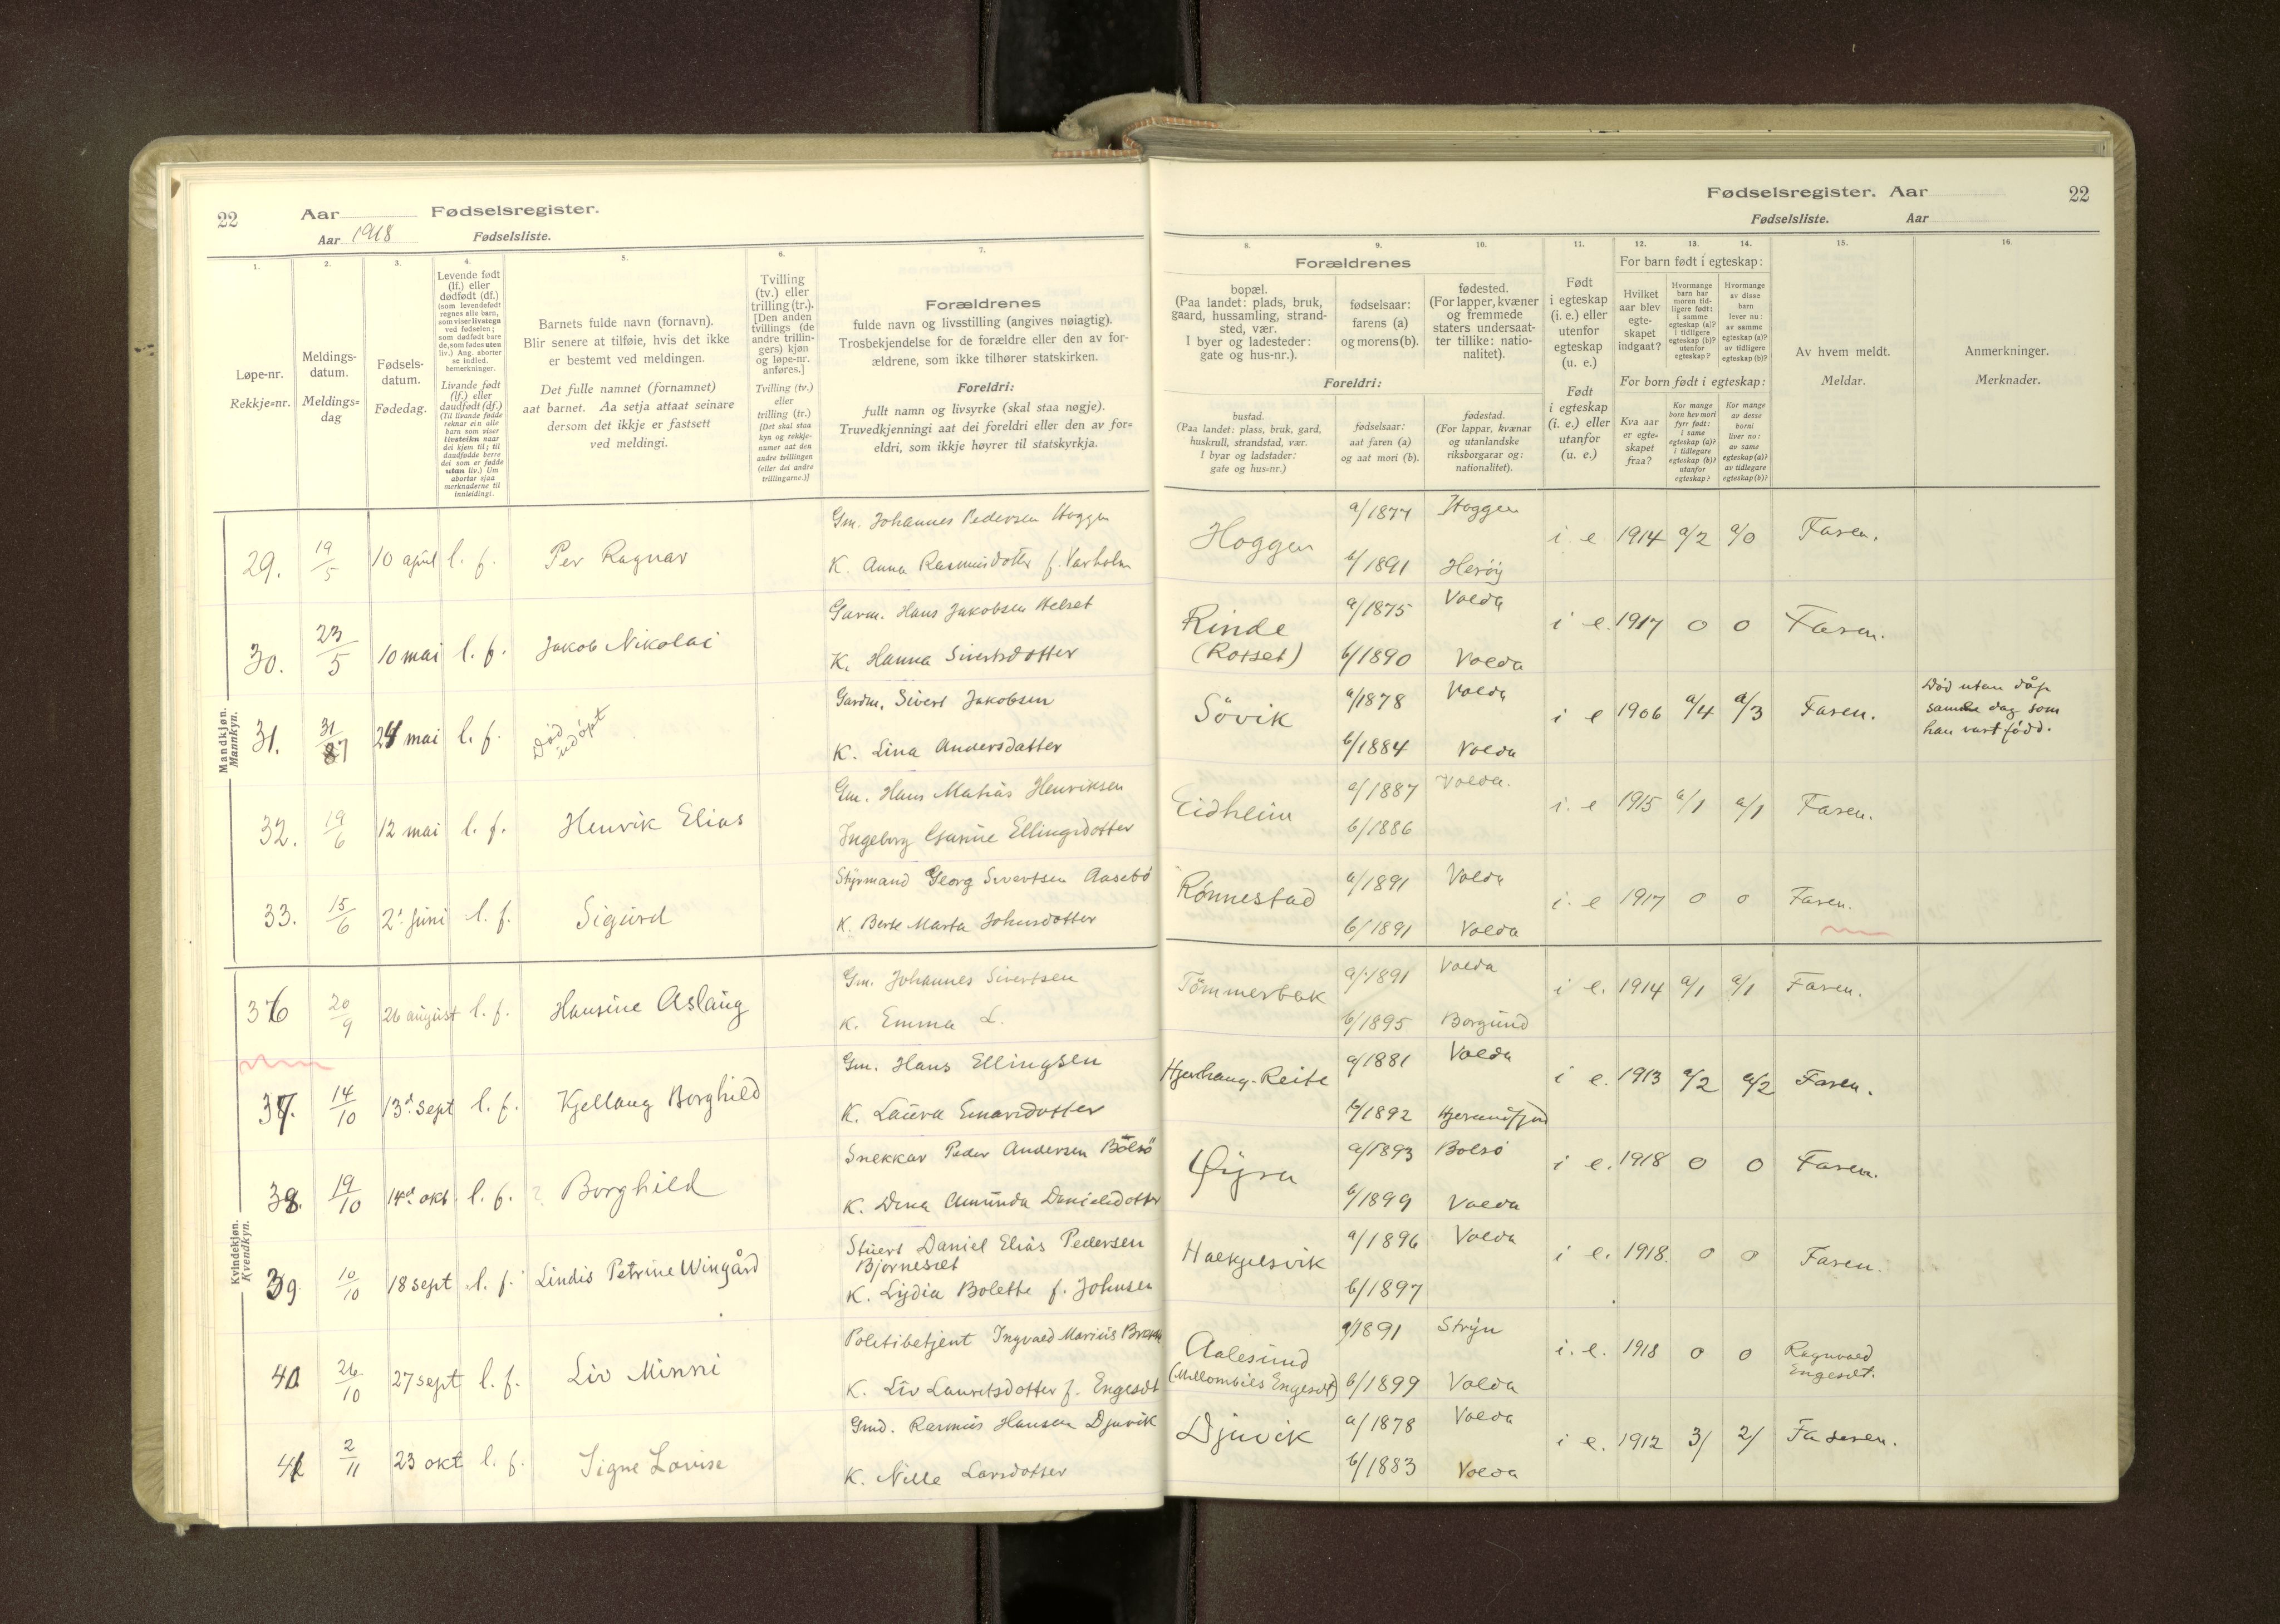 22 Aar Fødselsregister.
Aar 1918 Fødselsliste.
Fødselsregister. Aar 22
Fødselsliste. Aar
1. 2. 3. 4. 5. 6. 7.
Løpe-nr.
Rekkje=nr.
Meldings-
datum.
Meldings=
dag
Fødsels-
datum.
Fødedag.
Levende født
(lf.) eller
dødfødt (df.)
(som levendefødt
regnes alle barn,
som viser livstegn
ved fødselen;
som dødfødt bare
de, som fødes uten
liv.) Ang. aborter
se indled.
bemerkninger.
Livande født
(lf.) eller
daudfødt (df.)
(Til livande fødde
reknar ein alle
barn som viser
livsteikn naar
dei kjem til; til
daudfødde berre
dei som er fødde
utan liv.) Um
abortar sjaa
merknaderne til
innleidingi.
Barnets fulde navn (fornavn).
Blir senere at tilføie, hvis det ikke
er bestemt ved meldingen.
Det fulle namnet (fornamnet)
aat barnet. Aa setja attaat seinare
dersom det ikkje er fastsett
ved meldingi.
Tvilling
(tv.) eller
trilling (tr.).
[Den anden
tvillings (de
andre trillin-
gers) kjøn
og løpe-nr.
anføres.]
Tvilling (tv.)
eller
trilling (tr.)
[Det skal staa
kyn og rekkje-
numer aat den
andre tvillingen
(eller dei andre
trillingarne.)]
Forældrenes
fulde navn og livsstilling (angives nøiagtig).
Trosbekjendelse for de forældre eller den av for-
ældrene, som ikke tilhører statskirken.
Foreldri:
fullt namn og livsyrke (skal staa nøgje).
Truvedkjenningi aat dei foreldri eller den av for=
eldri, som ikkje høyrer til statskyrkja.
8. 9. 10. 11. 12. 13. 14. 15. 16.
Forældrenes
bopæl.
(Paa landet: plads, bruk,
gaard, hussamling, strand-
sted, vær.
I byer og ladesteder:
gate og hus-nr.).
fødselsaar:
farens (a)
og morens (b).
fødested.
(For lapper, kvæner
og fremmede
staters undersaat-
ter tillike: natio-
nalitet).
Foreldri:
bustad.
(Paa landet: plass, bruk, gard,
huskrull, strandstad, vær.
I byar og ladstader:
gate og hus-nr.)
fødselsaar:
aat faren (a)
og aat mori (b).
fødestad.
(For lappar, kvænar
og utanlandske
riksborgarar og:
nationalitet).
Født
i egteskap
(i. e.) eller
utenfor
egteskap
(u. e.)
Født
i egteskap
(i. e.) eller
utanfor
egteskap
(u. e.)
For barn født i egteskap:
Hvilket
aar blev
egte-
skapet
indgaat?
Hvormange
barn har
moren tid-
ligere født:
i samme
egteskap (a)?
i tidligere
egteskap (b)?
utenfor
egteskap?
Hvormange
av disse
barn
lever nu:
av samme
egteskap (a)?
av tidligere
egteskap (b)?
For born født i egteskap:
Kva aar
er egte-
skapet
fraa?
Kor mange
born hev mori
fyrr født:
i same
egteskap (a)?
i tidlegare
egteskap (b)?
utanfor
egteskap?
Kor mange
av desse
borni
liver no:
av same
egteskap (a)?
av tidlegare
egteskap (b)?
Av hvem meldt.
Meldar.
Anmerkninger.
Merknader.
Mandkjøn.
Mannkyn.
Gm. Johannes Pedersen Hoggen a/1877 Hoggen
29. 19/5 10 april l. f. Per Ragnar Hoggen i e 1914 a/2 a/0 Faren.
K. Anna Rasmusdotter f. Varholm b/1891 Herøy
Garm. Hans Jakobsen Helset a/1875 Volda
30. 23/5 10 mai l. f. Jakob Nikolai Rinde i e. 1917 0 0 Faren.
K. Hanna Sivertsdotter (Rotset) b/1890 Volda
Gardm. Sivert Jakobsen a/1878 Volda
31. 31/7 24 mai l. f. Død udöpt Sövik i e 1906 a/4 a/3 Faren.
Død utan dåp
samme dag som
han vart född.
K. Lina Andersdatter b/1884 Volda
Gm. Hans Matias Henriksen a/1887 Volda.
32. 19/6 12 mai l. f. Henrik Elias Eidheim i. e 1915 a/1 a/1 Faren.
Ingeborg Gurine Ellingsdotter b/1886
Styrmand Georg Sivertsen Aasebö a/1891 Volda
33. 15/6 2. juni l. f. Sigurd Rönnestad i. e 1917 0 0 Faren.
K. Berte Marta Johnsdotter b/1891 Volda
Kvindekjøn.
Kvendkyn.
Gm. Johannes Sivertsen a/1891 Volda
36 20/9 26 august l. f. Hansine Aslaug Tömmerbak i e. 1914 a/1 a/1 Faren.
K. Emma L. b/1895 Borgund
Gm. Hans Ellingsen a/1881 Volda
37. 14/10 13d. sept l. f. Kjellaug Borghild Hjervhaug-Reite i e. 1913 a/2 a/2 Faren.
K. Laura Einarsdotter b/1892 Hjørundfjord
Snekkar Peder Andersen Bolsö a/1893 Bolsö
38. 19/10 14d. okt. l. f. ? Borghild Øyra i e. 1918 0 0 Faren.
K. Dina Amunda Danielsdotter b/1899 Volda
Stuert Daniel Elias Pedersen a/1896 Volda
Bjørneset
39 10/10 18 sept l. f. Lindis Petrine Wingård Halkjelsvik i e. 1918. 0 0 Faren.
K. Lydia Bolette f. Johnsen b/1897
Politibetjent Ingvald Marius a/1891 Stryn
40 26/10 27 sept l. f. Liv Minni Aalesund i. e. 1918 0 0 Ragnvald
Engeset.
K. Liv Lauritsdotter f. Engeset (Mellombils Engeset) b/1899 Volda
Gmd. Rasmus Hansen Djuvik a/1878 Volda
41 2/11 23 okt l. f. Signe Lovise Djuvik i e. 1912 3/ 2/ Faderen.
K. Nille Larsdotter b/1883 Volda